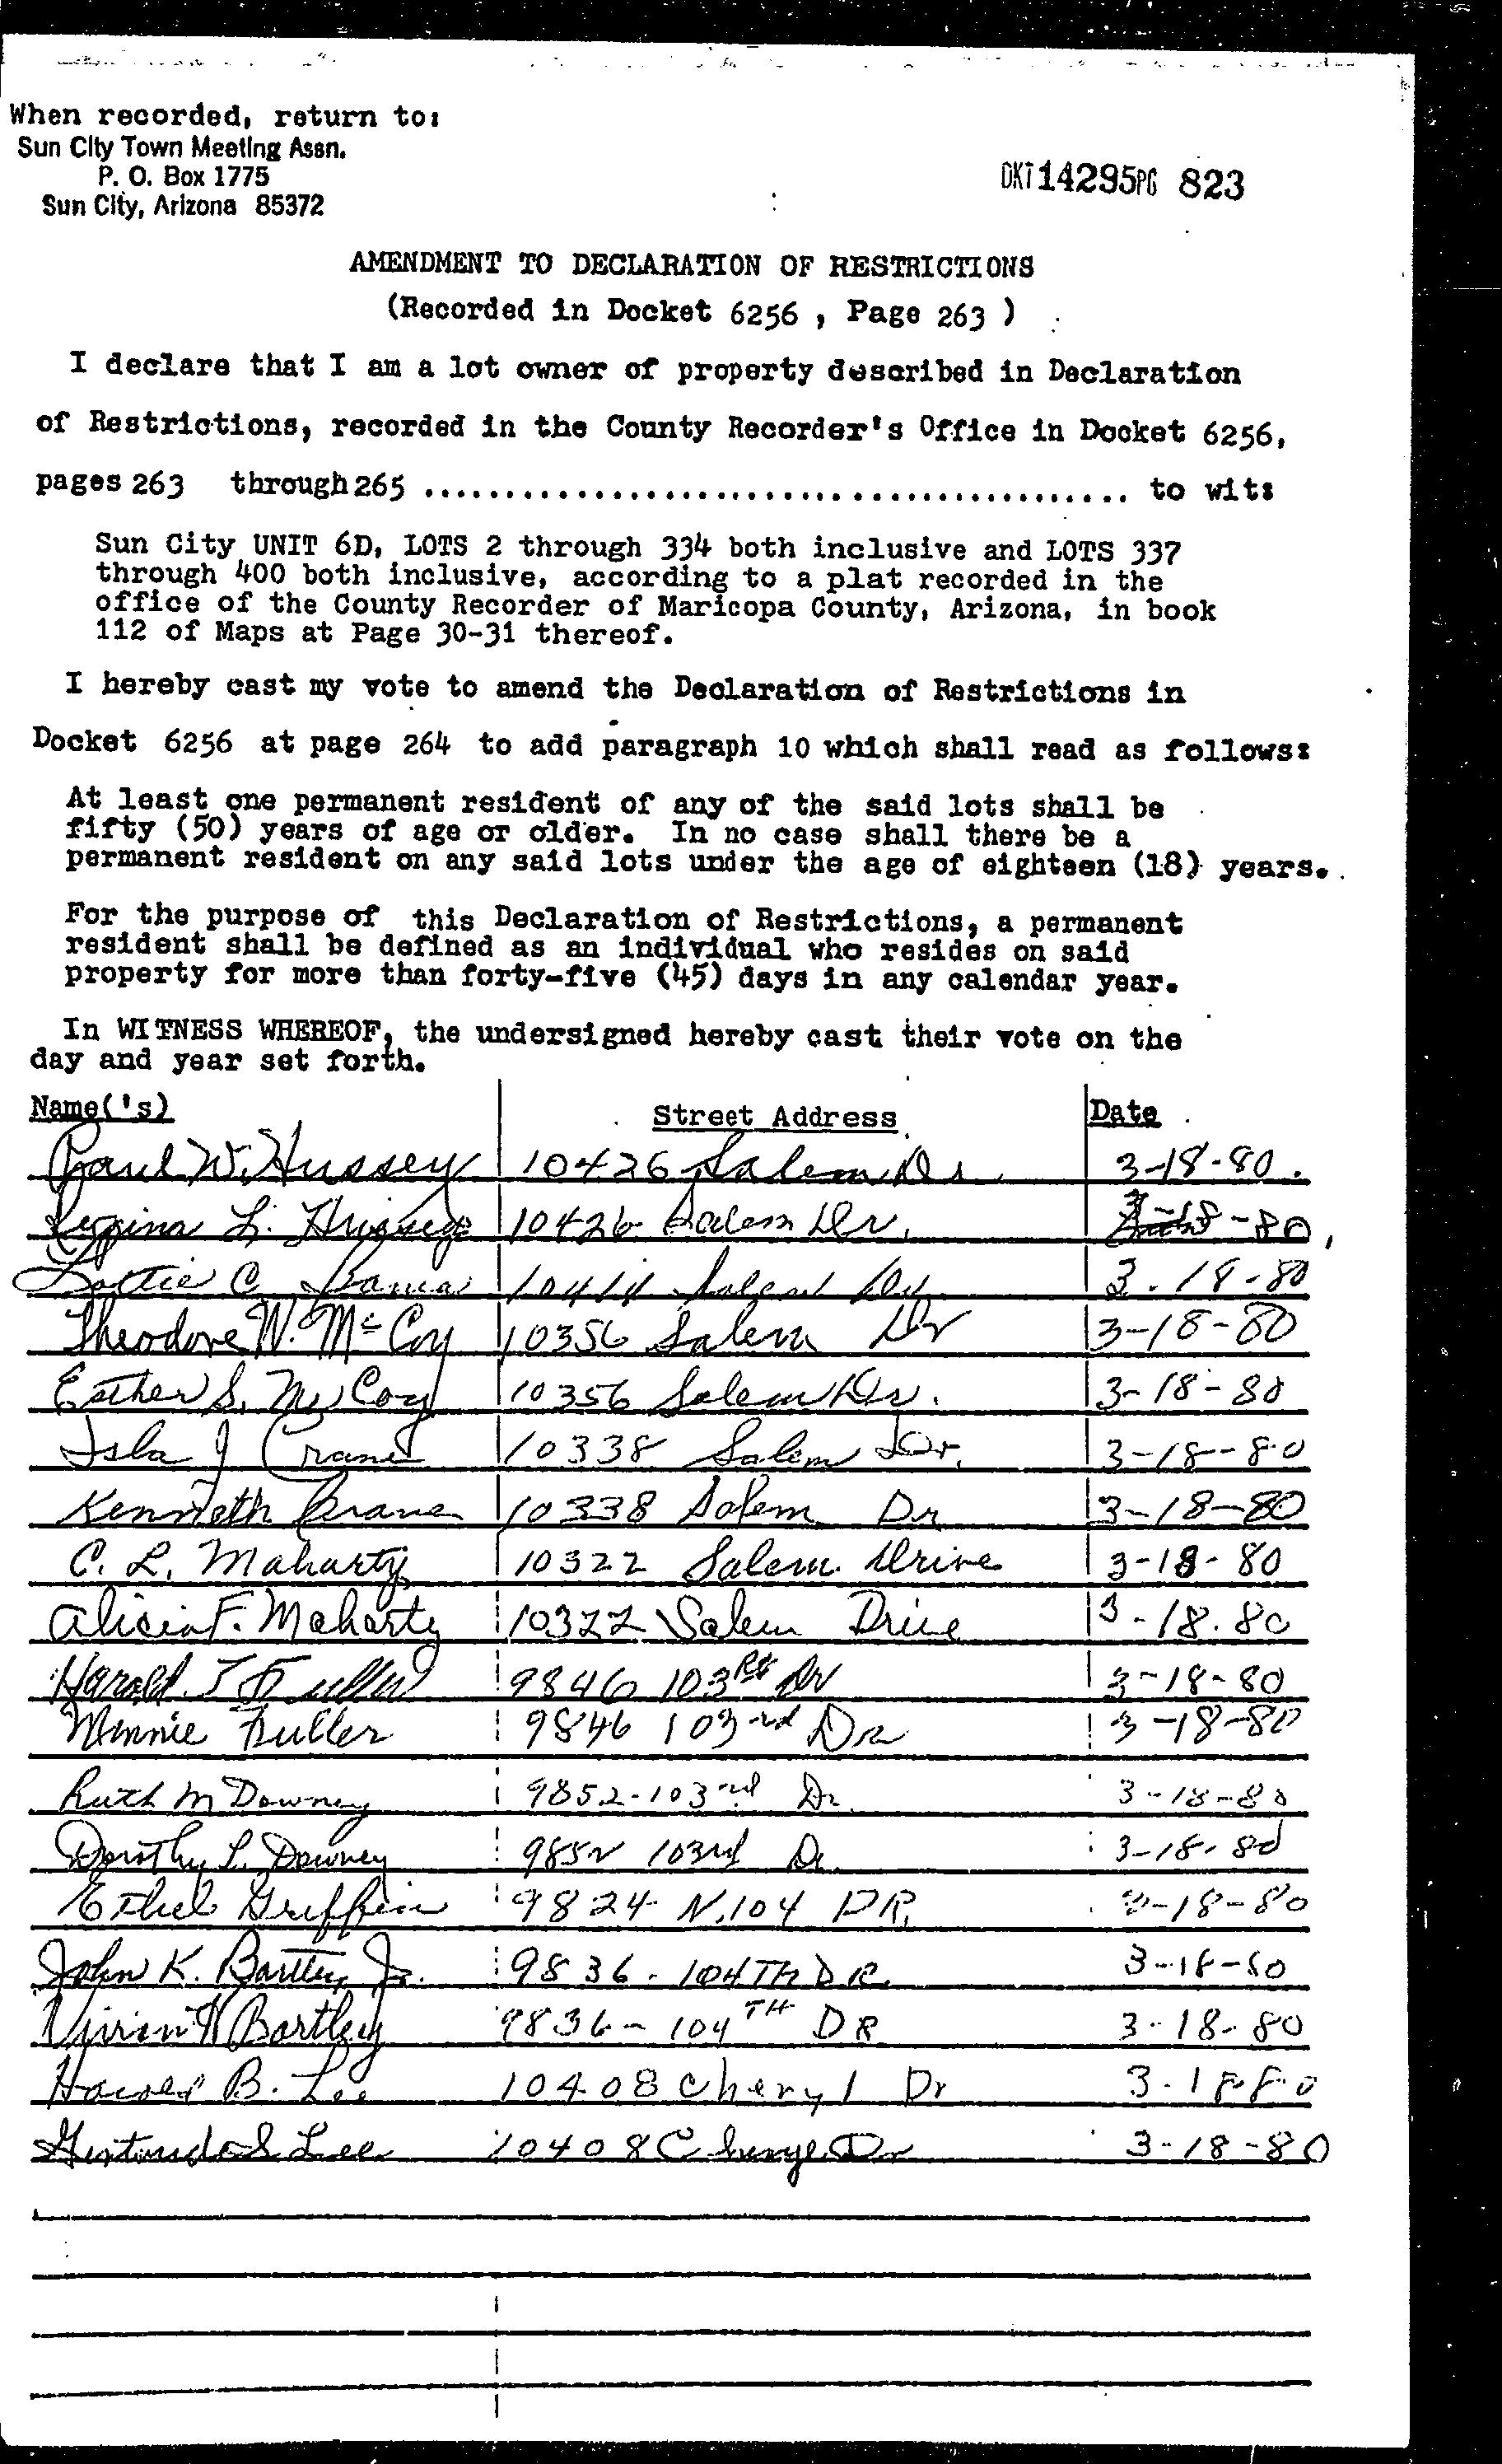 When recorded, return to:
Sun City Town Meeting Assn.
P. O. Box 1775
Sun City, Arizona 85372
DKT 14295 PG 823
AMENDMENT TO DECLARATION OF RESTRICTIONS
(Recorded in Docket 6256 , Page 263 )
I declare that I am a lot owner of property described in Declaration
of Restrictions, recorded in the County Recorder's Office in Docket 6256,
pages 263 through 265 ............................................ to wit:
Sun City UNIT 6D, LOTS 2 through 334 both inclusive and LOTS 337
through 400 both inclusive, according to a plat recorded in the
office of the County Recorder of Maricopa County, Arizona, in book
112 of Maps at Page 30-31 thereof.
I hereby cast my vote to amend the Declaration of Restrictions in
Docket 6256 at page 264 to add paragraph 10 which shall read as follows:
At least one permanent resident of any of the said lots shall be
fifty (50) years of age or older. In no case shall there be a
permanent resident on any said lots under the age of eighteen (18) years.
For the purpose of this Declaration of Restrictions, a permanent
resident shall be defined as an individual who resides on said
property for more than forty-five (45) days in any calendar year.
In WITNESS WHEREOF, the undersigned hereby cast their vote on the
day and year set forth.
Name('s) Street Address Date
Paul W. Hussey 10426 Salem Dr. 3-18-80.
L. Hussey 10426 Salem Dr. -80
Lottie C. Salem Dr. 3-18-80
Theodore W. McCoy 10356 Salem Dr 3-18-80
Esther S. McCoy 10356 Salem Dr. 3-18-80
Isla J Crane 10338 Salem Dr. 3-18-80
Kenneth Crane 10338 Salem Dr 3-18-80
C. L. Maharty 10322 Salem Drive 3-18-80
Alicia F. Maharty 10322 Salem Drive 3-18.80
Harold J Fuller 9846 103rd Dr 3-18-80
Minnie Fuller 9846 103rd Dr 3-18-80
Ruth M Downey 9852-103rd Dr. 3-18-80
Dorothy L. Downey 9852 103rd Dr. 3-18-80
Ethel Griffin 9824 N. 104 DR. 3-18-80
John K. Bartley Jr. 9836-104TH DR. 3-18-80
Bartley 9836-104TH DR 3-18-80
B. Lee 10408 Cheryl Dr 3-18-80
Lee 10408 Cheryl Dr 3-18-80